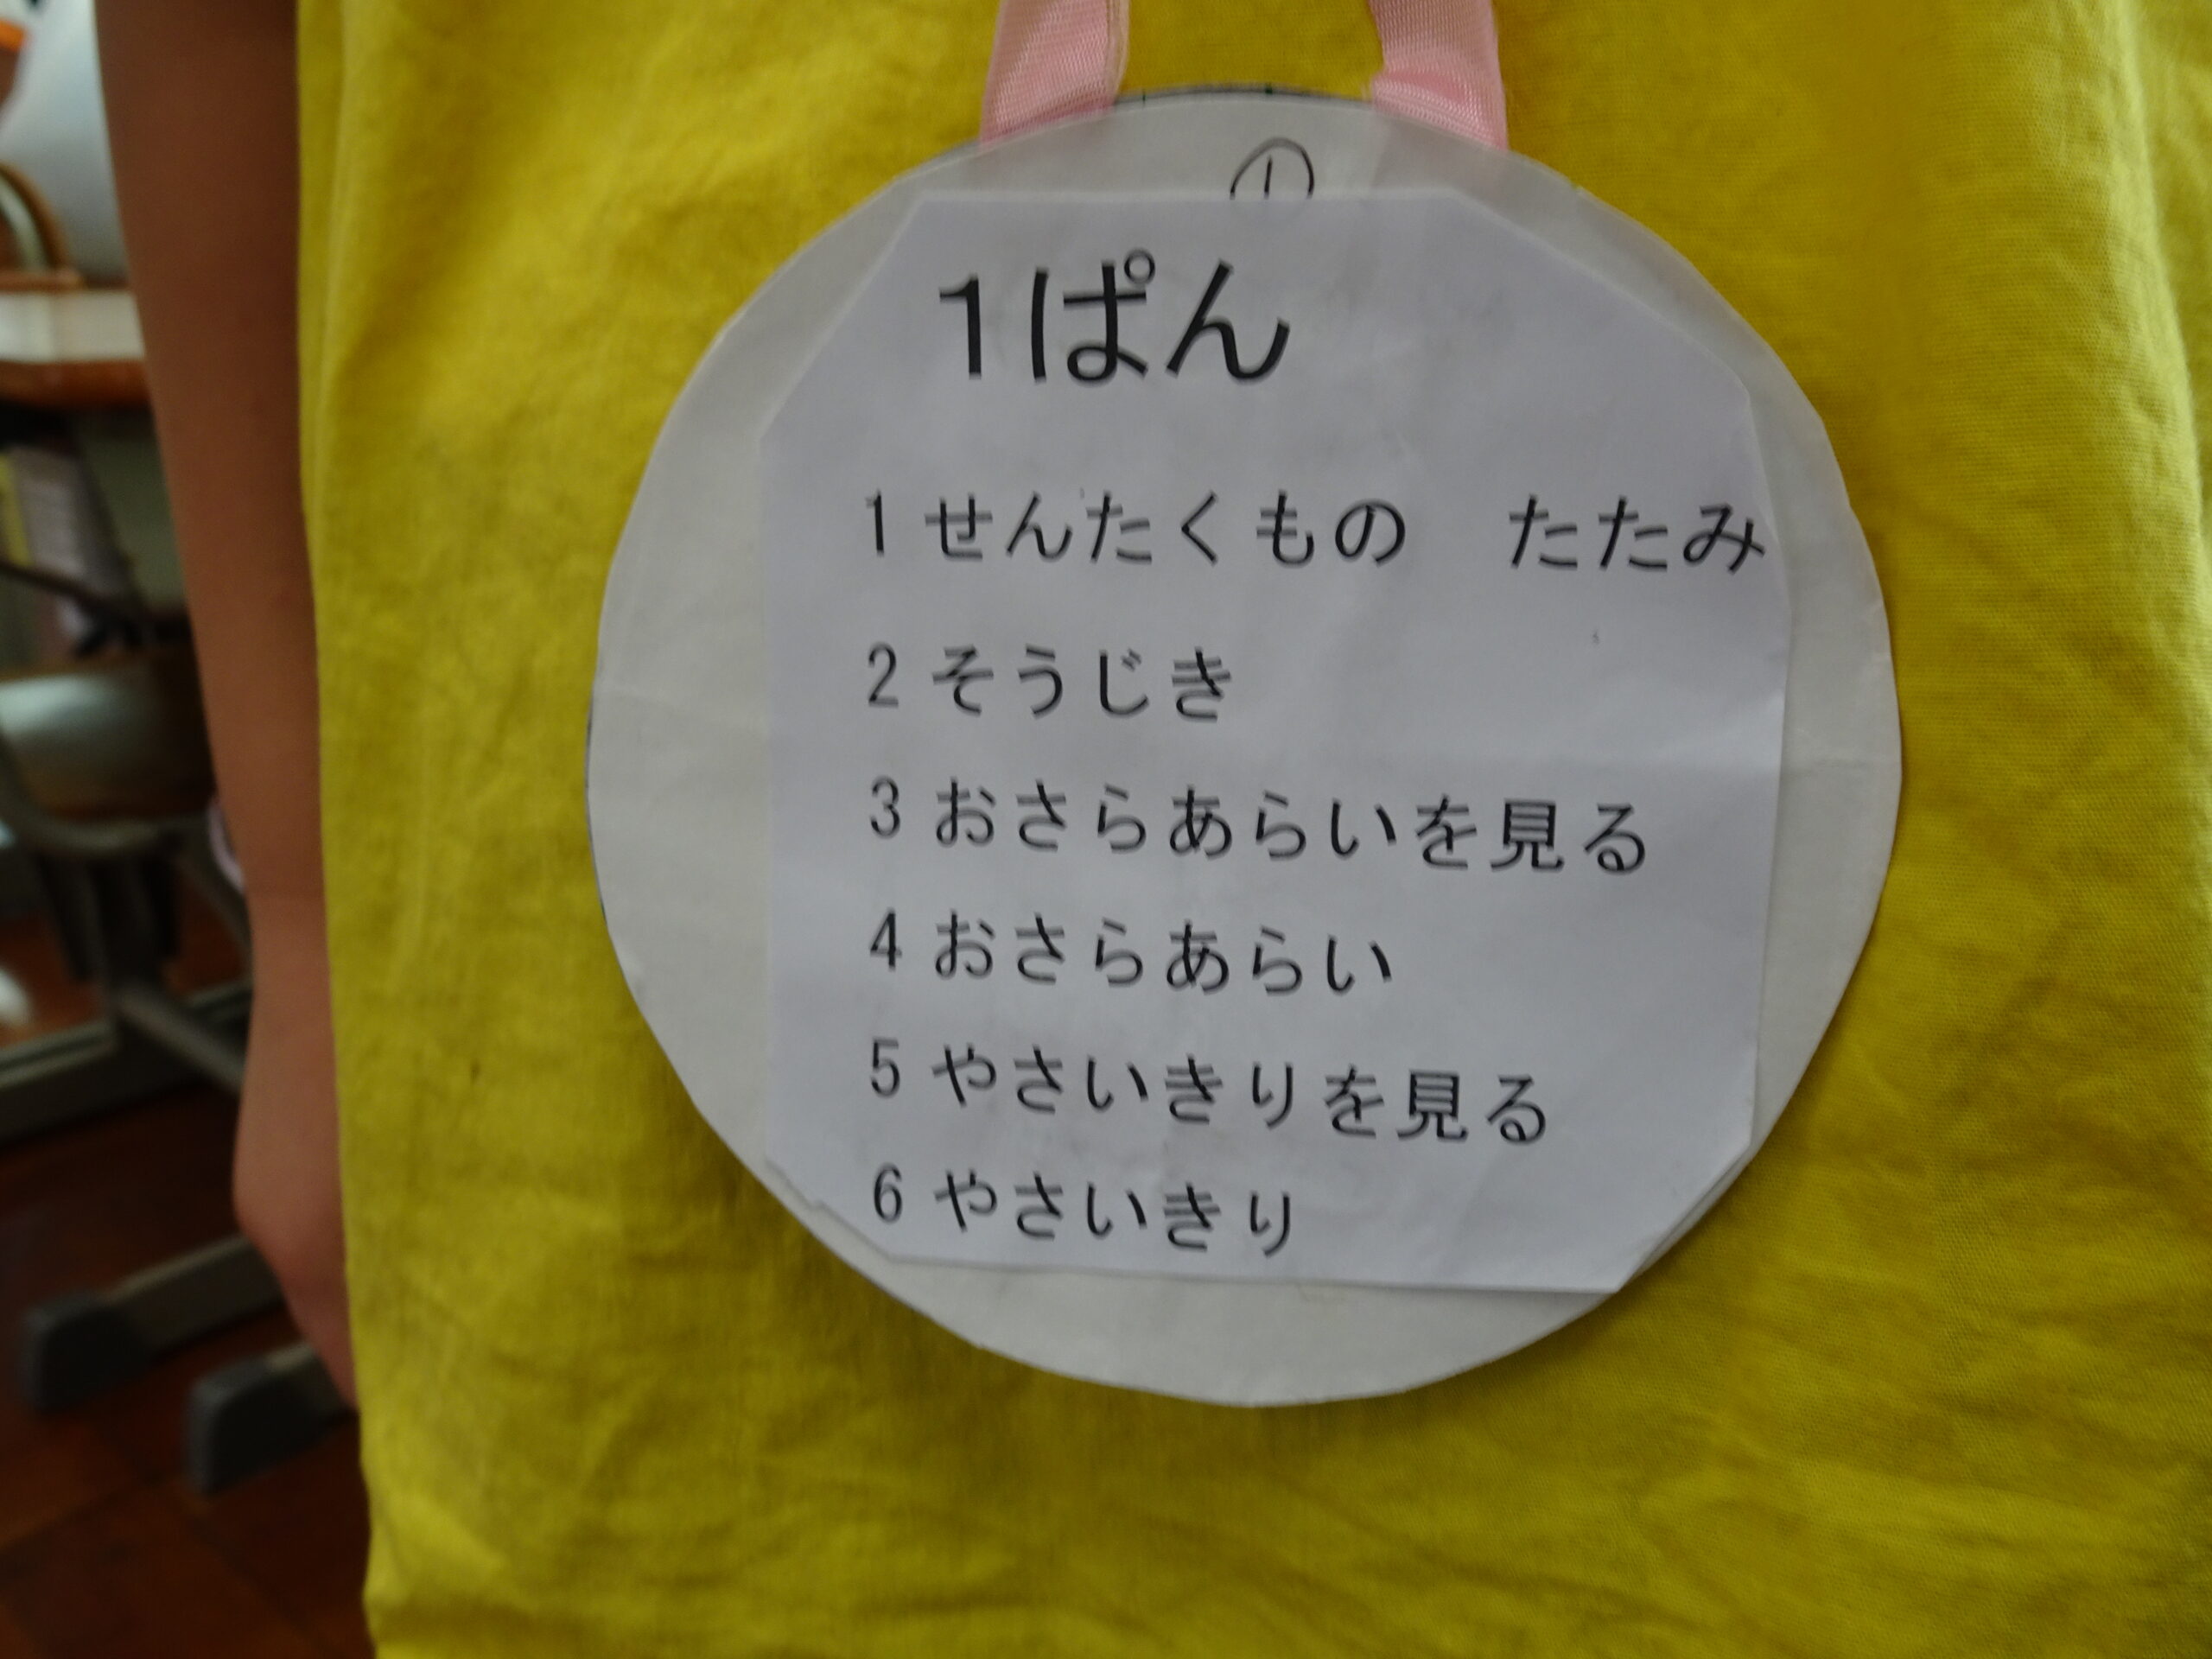 ①
1ぱん
1 せんたくもの　たたみ
2 そうじき
3 おさらあらいを見る
4 おさらあらい
5 やさいきりを見る
6 やさいきり